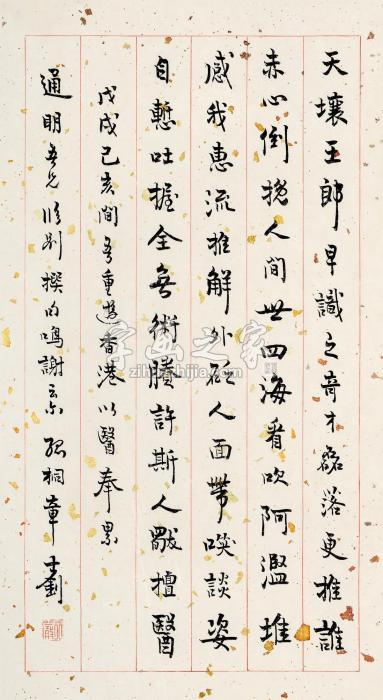 天壤王郎早識之奇才磊落更推誰
赤心倒挽人間世四海看吹阿濫堆
感我惠流推解外砭人面帶啖談姿
自慙吐握全無術賸許斯人獸擅醫
戊戌己亥間吾重遊香港以醫奉累
通明吾兄臨別撰句鳴謝云尔 孤桐章士釗
字画之家